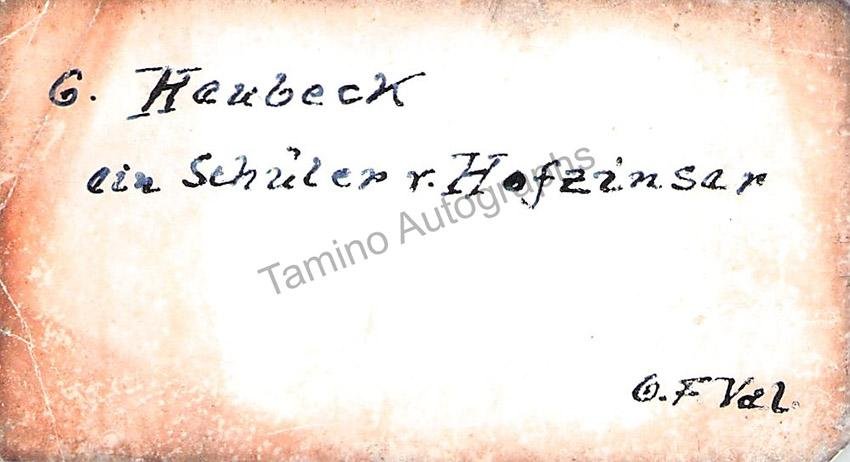 G. Haubeck
ein Schüler v. Hofzinsar
Tamino Autographs
O.F Val.